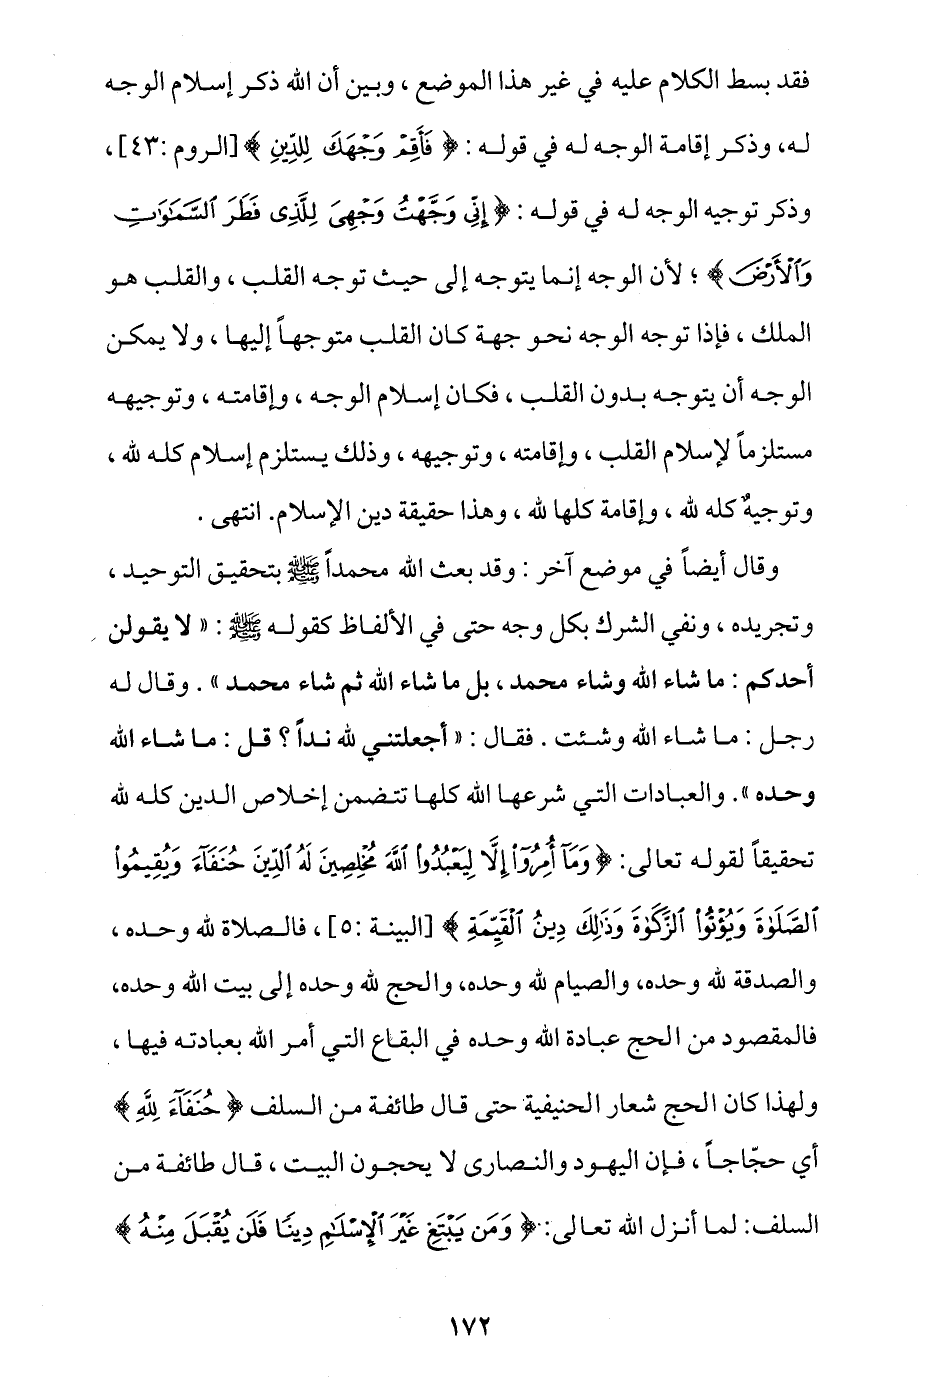 فقد بسط الكلام عليه في غير هذا الموضع ، وبين أن الله ذكر إسلام الوجه
له، وذكر إقامة الوجه له في قوله : ﴿ فَأَقِمْ وَجْهَكَ لِلدِّينِ ﴾ [الروم :٤٣] ،
وذكر توجيه الوجه له في قوله : ﴿ إِنِّي وَجَّهْتُ وَجْهِيَ لِلَّذِى فَطَرَ ٱلسَّمَٰوَٰتِ
وَٱلْأَرْضَ ﴾ ؛ لأن الوجه إنما يتوجه إلى حيث توجه القلب ، والقلب هو
الملك ، فإذا توجه الوجه نحو جهة كان القلب متوجهاً إليها ، ولا يمكن
الوجه أن يتوجه بدون القلب ، فكان إسلام الوجه ، وإقامته ، وتوجيهه
مستلزماً لإسلام القلب ، وإقامته ، وتوجيهه ، وذلك يستلزم إسلام كله لله ،
وتوجيهٌ كله لله ، وإقامة كلها لله ، وهذا حقيقة دين الإسلام. انتهى .
وقال أيضاً في موضع آخر : وقد بعث الله محمداً ﷺ بتحقيق التوحيد ،
وتجريده ، ونفي الشرك بكل وجه حتى في الألفاظ كقوله ﷺ : « لا يقولن
أحدكم : ما شاء الله وشاء محمد ، بل ما شاء الله ثم شاء محمد » . وقال له
رجل : ما شاء الله وشئت . فقال : « أجعلتني لله نداً ؟ قل : ما شاء الله
وحده ». والعبادات التي شرعها الله كلها تتضمن إخلاص الدين كله لله
تحقيقاً لقوله تعالى: ﴿ وَمَآ أُمِرُوٓا۟ إِلَّا لِيَعْبُدُوا۟ ٱللَّهَ مُخْلِصِينَ لَهُ ٱلدِّينَ حُنَفَآءَ وَيُقِيمُوا۟
ٱلصَّلَوٰةَ وَيُؤْتُوا۟ ٱلزَّكَوٰةَ وَذَٰلِكَ دِينُ ٱلْقَيِّمَةِ ﴾ [البينة :٥] ، فالصلاة لله وحده ،
والصدقة لله وحده، والصيام لله وحده، والحج لله وحده إلى بيت الله وحده،
فالمقصود من الحج عبادة الله وحده في البقاع التي أمر الله بعبادته فيها ،
ولهذا كان الحج شعار الحنيفية حتى قال طائفة من السلف ﴿ حُنَفَآءَ لِلَّهِ ﴾
أي حجّاجاً ، فإن اليهود والنصارى لا يحجون البيت ، قال طائفة من
السلف: لما أنزل الله تعالى: ﴿ وَمَن يَبْتَغِ غَيْرَ ٱلْإِسْلَٰمِ دِينًا فَلَن يُقْبَلَ مِنْهُ ﴾
١٧٢